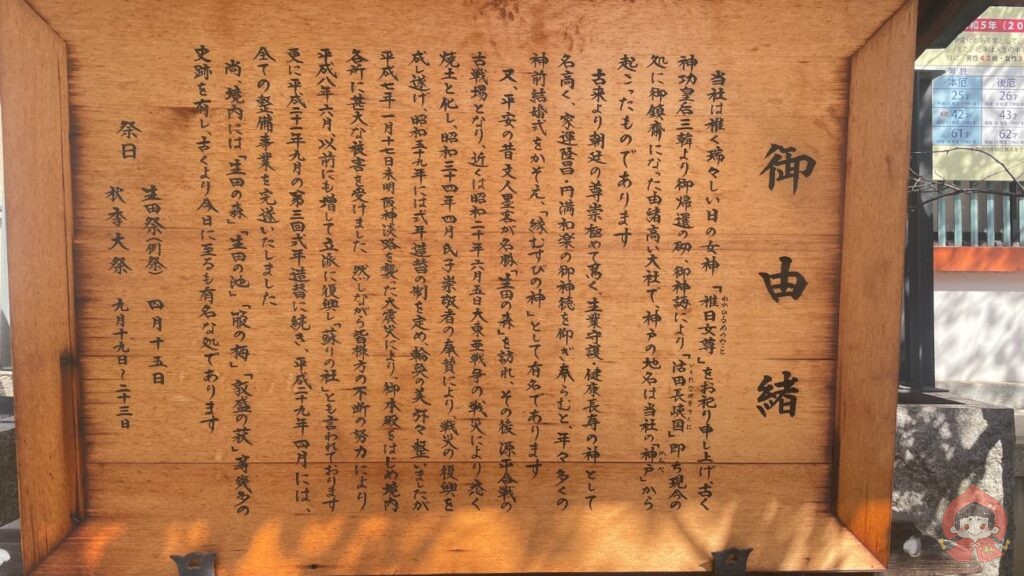 御由緒
当社は稚く瑞々しい日の女神「稚日女尊」をお祀り申し上げ古く
わかひるめのみこと
神功皇后三韓より御帰還の砌、御神誨により、「活田長峡国」即ち現今の
いくたながをのくに
処に御鎮斎になった由緒高い大社で、神戸の地名は当社の「神戸」から
かんべ
起こったものであります
古来より朝廷の尊崇極めて篤く、生業守護、健康長寿の神として
名高く、家運隆昌、円満和楽の御神徳を仰ぎ奉らむと、年々多くの
神前結婚式をかぞえ、「縁むすびの神」として有名であります
又、平安の昔、文人墨客が名歌「生田の森」を訪れ、その後、源平合戦の
古戦場となり、近くは昭和二十年六月五日大東亜戦争の戦災により悉く
焼土と化し、昭和三十四年四月氏子崇敬者の奉賛により、戦災の復興を
成し遂げ、昭和五十九年には式年造替の制を定め、輪奐の美弥々整いましたが
平成七年一月十七日未明阪神淡路を襲った大震災により、御本殿をはじめ境内
各所に甚大な被害を受けました 然しながら皆様方の不断の努力により
平成八年六月、以前にも増して立派に復興し「蘇りの社」とも言われております
更に平成二十一年九月の第三回式年造替に続き、平成二十九年四月には、
全ての整備事業を完遂いたしました
尚、境内には「生田の森」「生田の池」「箙の梅」「敦盛の萩」等幾多の
史跡を有し、古くより今日に至るも有名な処であります
祭日
生田祭(例祭) 四月十五日
秋季大祭 九月十九日～二十三日
和5年(20
男性42歳・女性3
男性
本厄 後厄
25才 26才
42才 43才
61才 62才